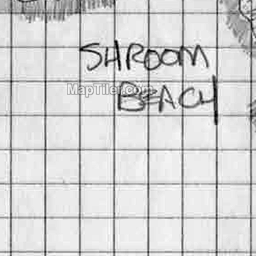 SHROOM
BEACH
MapTiler.com